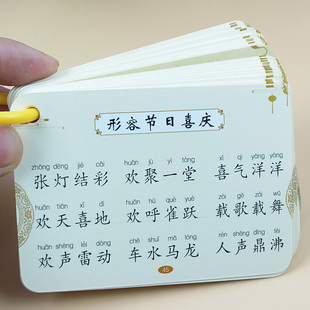 形容节日喜庆
zhāng dēng jié cǎi huān jù yì táng xǐ qì yáng yáng
张灯结彩 欢聚一堂 喜气洋洋
huān tiān xǐ dì huān hū què yuè zài gē zài wǔ
欢天喜地 欢呼雀跃 载歌载舞
huān shēng léi dòng chē shuǐ mǎ lóng rén shēng dǐng fèi
欢声雷动 车水马龙 人声鼎沸
45